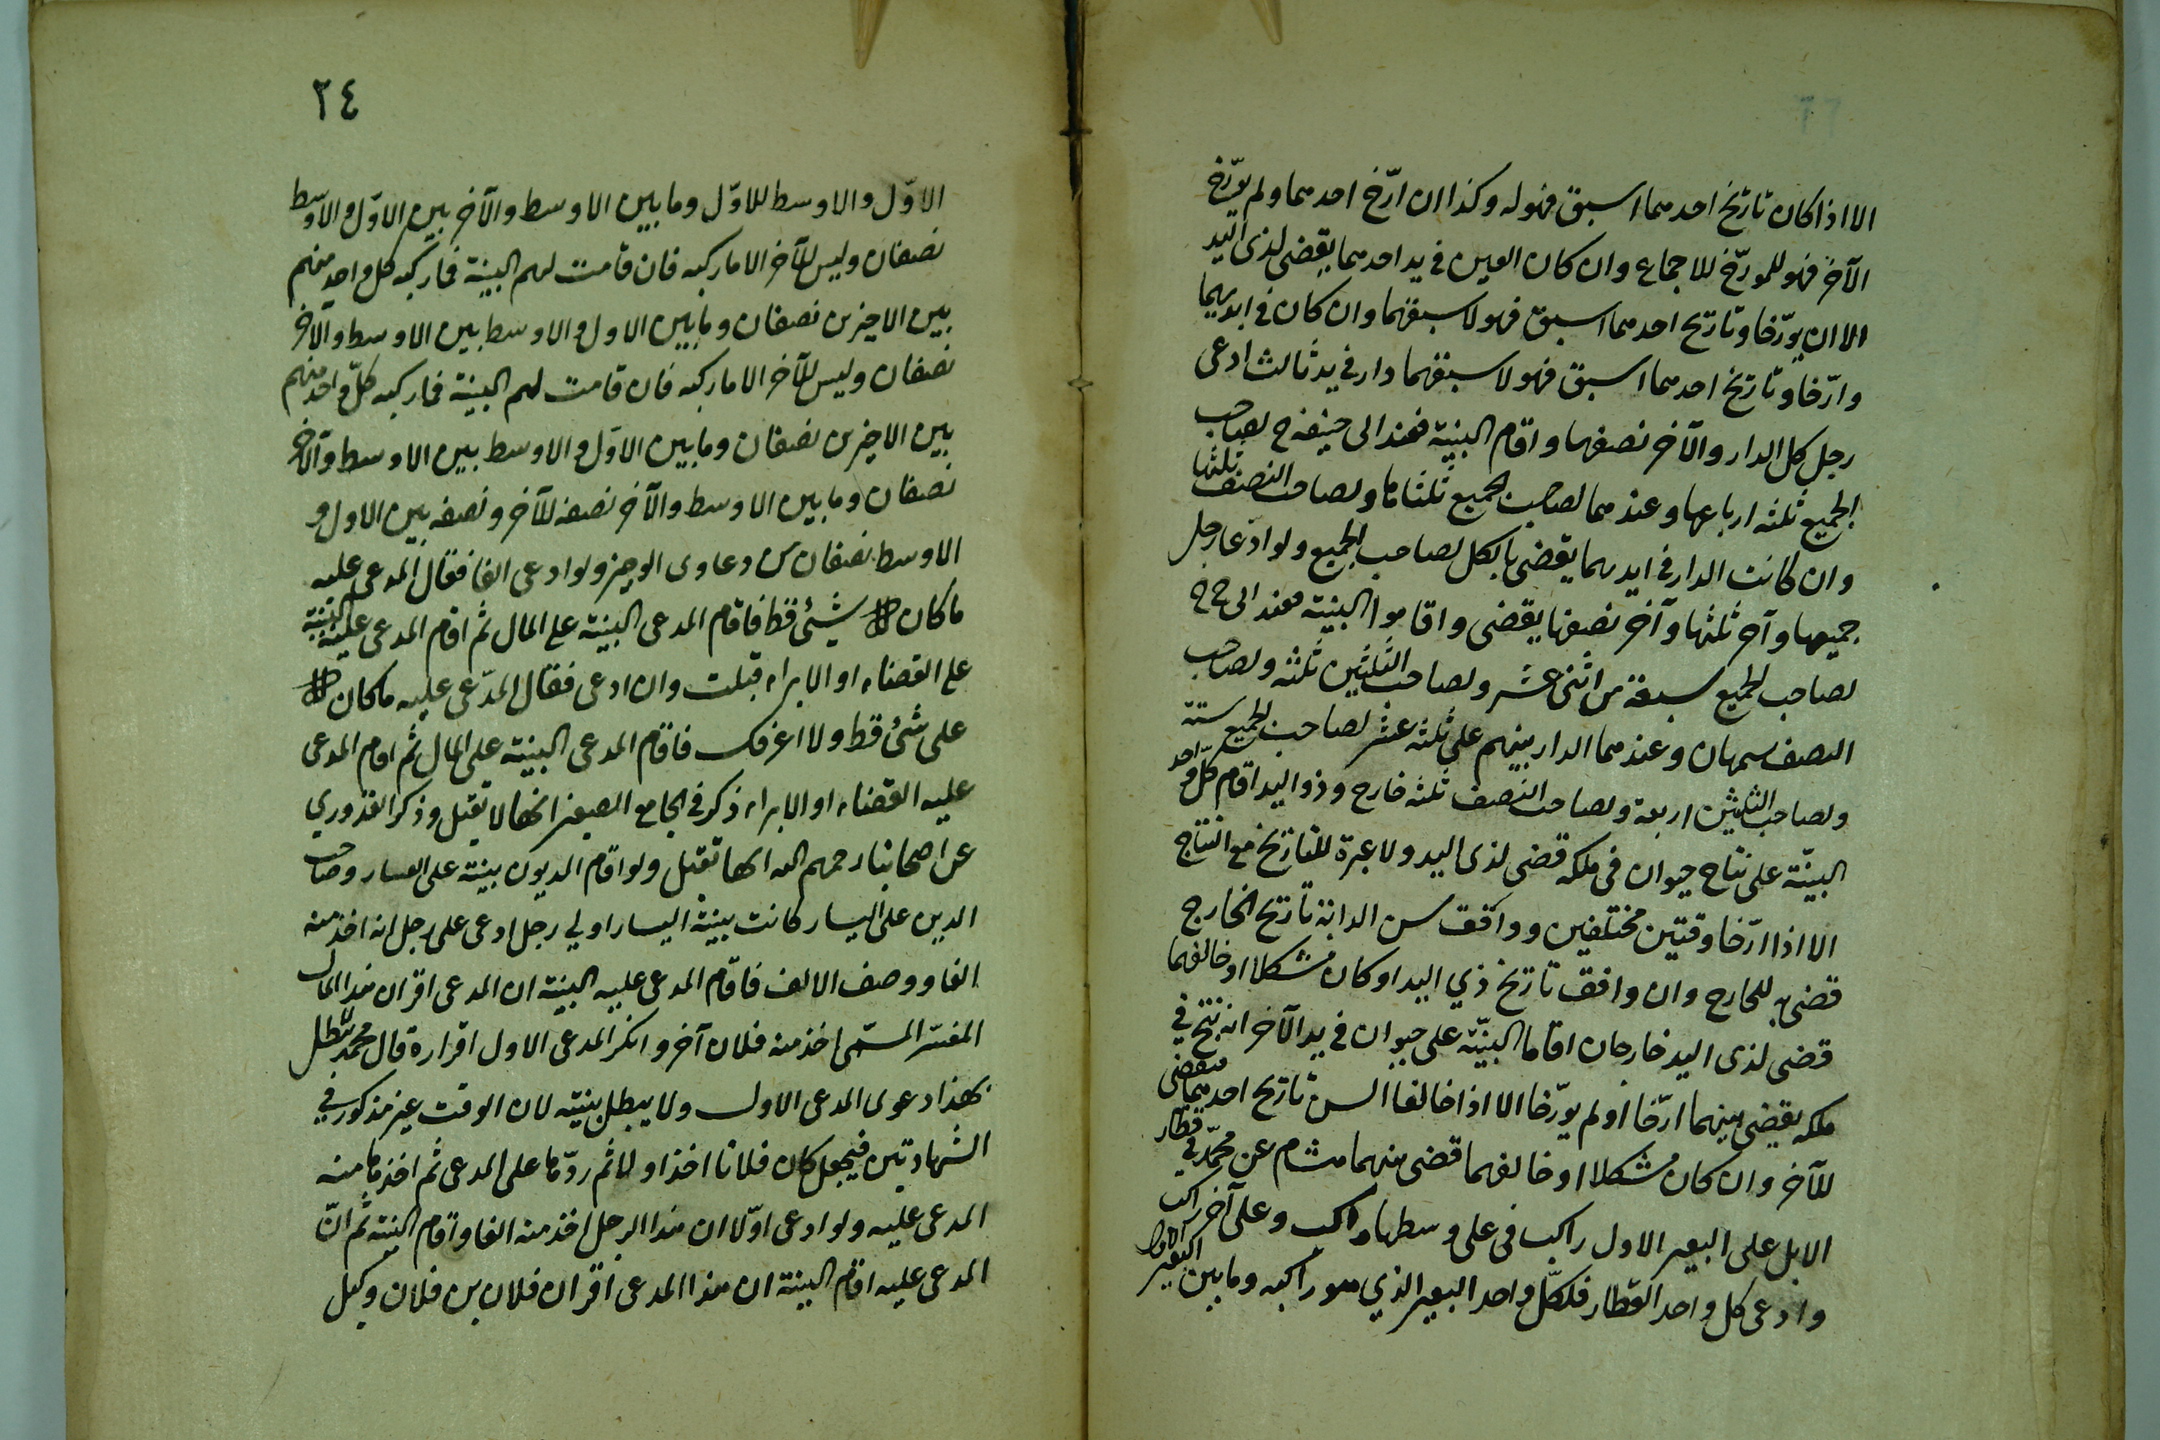 الا اذا كان تاريخ احدهما اسبق فهو له وكذا ان ارّخ احدهما ولم يورّخ
الآخر فهو للمورّخ للاجماع وان كان العين فى يد احدهما يقضى لذى اليد
الا ان يورّخا وتاريخ احدهما اسبق فهو لاسبقهما وان كان فى ايديهما
وارّخا وتاريخ احدهما اسبق فهو لاسبقهما دار فى يد ثالث ادعى
رجل كل الدار والآخر نصفها واقام البينة فعند ابى حنيفه ح لصاحب
الجميع ثلثه ارباعها وعندهما لصاحب الجميع ثلثاها ولصاحب النصف ثلثها
وان كانت الدار فى ايديهما يقضى بالكل لصاحب الجميع ولو ادّعا رجل
جميعها وآخر ثلثها وآخر نصفها يقضى واقاموا البينة فعند ابى ح ح
لصاحب الجميع سبعة من اثنى عشر ولصاحب الثلثين ثلثه ولصاحب
النصف سهمان وعندهما الدار بينهم على ثلثه عشر لصاحب الجميع ستة
ولصاحب الثلثين اربعة ولصاحب النصف ثلثه خارج وذو اليد اقام كلّ واحد
البينّة على نتاج حيوان فى ملكه قضى لذى اليد ولا عبرة للتاريخ مع النتاج
الا اذا ارّخا وقتين مختلفين ووافقت سن الدابة تاريخ الخارج
قضى به للخارج وان وافق تاريخ ذي اليد او كان مشكلا او خالفهما
قضى لذى اليد خارجان اقاما البينّة على حيوان فى يد الآخر انه نتج في
ملكه يقضى بينهما ارّخا او لم يورّخا الا اذا خالفا السن تاريخ احدهما فيقضى
للآخر وان كان مشكلا او خالفهما قضى بينهما هشام عن محمّد في قطار
الابل على البعير الاول راكب فى على وسطها راكب وعلى آخر راكب
وادعى كل واحد القطار فلكلّ واحد البعير الذي هو راكبه وما بين البعير الاول
٢٤
الاوّل والاوسط للاوّل وما بين الاوسط والآخر بين الاوّل والاوسط
نصفان وليس للآخر الا ما ركبه فان قامت لهم البينة فما ركبه كل واحد منهم
بين الاخيرين نصفان وما بين الاول والاوسط بين الاوسط والآخر
نصفان وليس للآخر الا ما ركبه فان قامت لهم البينة فما ركبه كلّ واحد منهم
بين الاخيرين نصفان وما بين الاوّل والاوسط بين الاوسط والآخر
نصفان وما بين الاوسط والآخر نصفه للآخر ونصفه بين الاول و
الاوسط نصفان من دعاوى الوجيز ولو ادعى الفا فقال المدعى عليه
ما كان لك شيئ قط فاقام المدعى البينة على المال ثم اقام المدعى عليه البينة
على القضاء او الابراء قبلت وان ادعى فقال المدّعى عليه ما كان لك
على شئ قط ولا اعرفك فاقام المدعى البينة على المال ثم اقام المدعى
عليه القضاء او الابراء ذكر فى الجامع الصغير انها لا تقبل وذكر القدوري
عن اصحابنا رحمهم الله انها تقبل ولو اقام المديون بينة على العسار وصاحب
الدين على اليسار كانت بينة اليسار اولي رجل ادعى على رجل انه اخذ منه
الفا ووصف الالف فاقام المدعى عليه البينة ان المدعى اقر ان هذا المال
المفسّر المسمّى اخذ منه فلان آخر وانكر المدعى الاول اقراره قال محمد يبطل
بهذا دعوى المدعى الاول ولا يبطل بنيته لان الوقت غير مذكور في
الشهادتين فيجعل كان فلانا اخذ اولا ثم ردّها على المدعى ثم اخذها منه
المدعى عليه ولو ادعى اوّلا ان هذا الرجل اخذ منه الفا واقام البينة ثم انّ
المدعى عليه اقام البينة ان هذا المدعى اقر ان فلان بن فلان وكيل